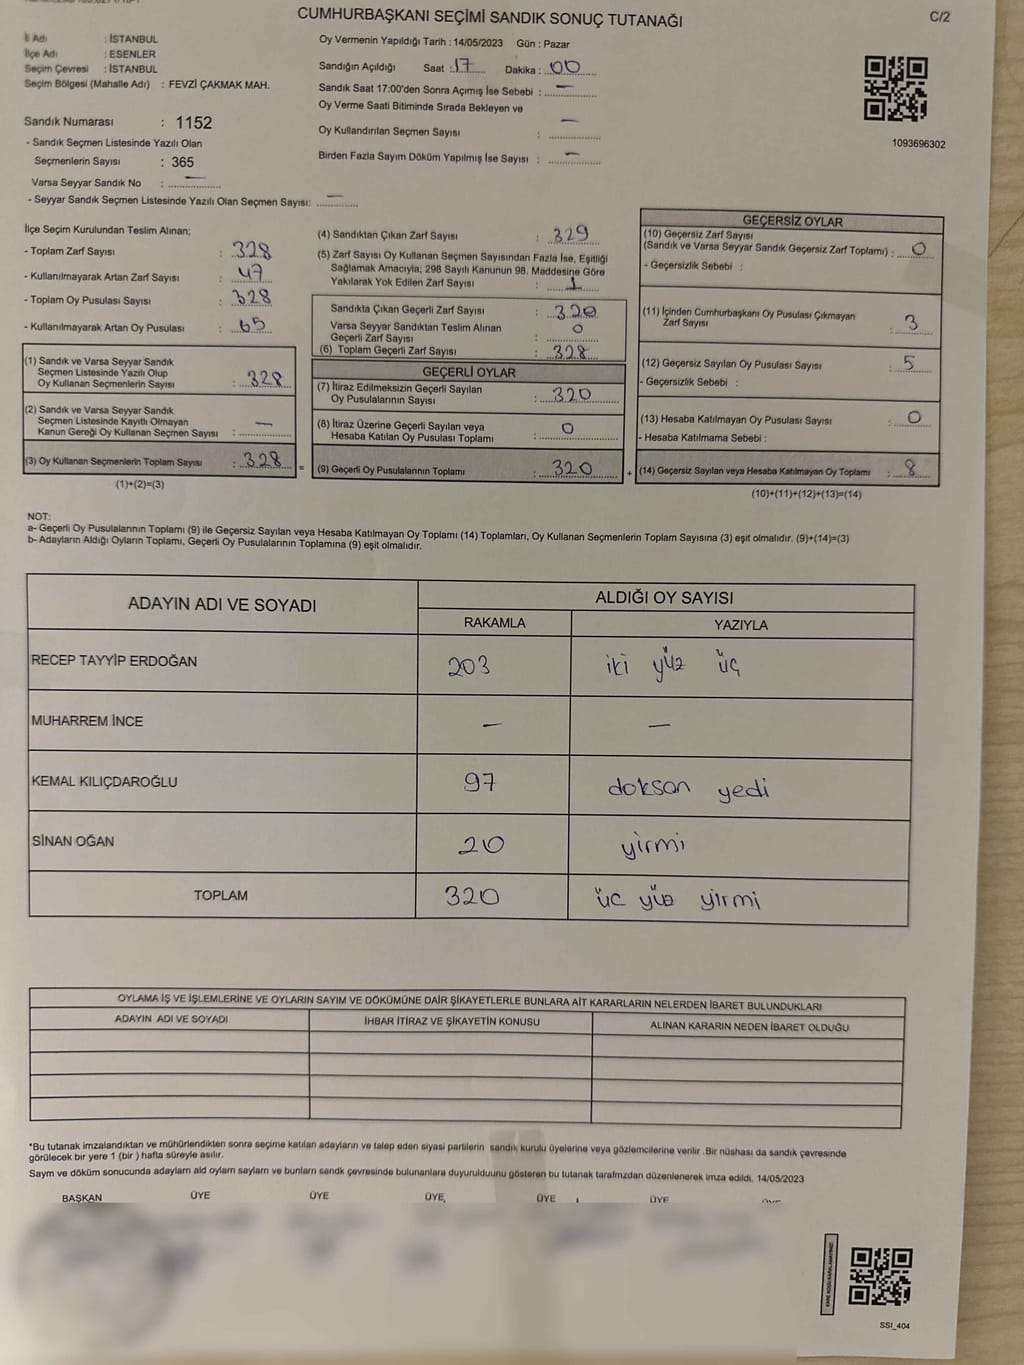 CUMHURBAŞKANI SEÇİMİ SANDIK SONUÇ TUTANAĞI
C/2
İl Adı : İSTANBUL
İlçe Adı : ESENLER
Seçim Çevresi : İSTANBUL
Seçim Bölgesi (Mahalle Adı) : FEVZİ ÇAKMAK MAH.
Sandık Numarası : 1152
- Sandık Seçmen Listesinde Yazılı Olan
Seçmenlerin Sayısı : 365
Varsa Seyyar Sandık No : —
- Seyyar Sandık Seçmen Listesinde Yazılı Olan Seçmen Sayısı: —
Oy Vermenin Yapıldığı Tarih : 14/05/2023 Gün : Pazar
Sandığın Açıldığı Saat : 17 Dakika : 00
Sandık Saat 17:00'den Sonra Açımış İse Sebebi : —
Oy Verme Saati Bitiminde Sırada Bekleyen ve
Oy Kullandırılan Seçmen Sayısı : —
Birden Fazla Sayım Döküm Yapılmış İse Sayısı : —
1093696302
İlçe Seçim Kurulundan Teslim Alınan;
- Toplam Zarf Sayısı : 328
- Kullanılmayarak Artan Zarf Sayısı : 47
- Toplam Oy Pusulası Sayısı : 328
- Kullanılmayarak Artan Oy Pusulası : 65
(1) Sandık ve Varsa Seyyar Sandık
Seçmen Listesinde Yazılı Olup
Oy Kullanan Seçmenlerin Sayısı : 328
(2) Sandık ve Varsa Seyyar Sandık
Seçmen Listesinde Kayıtlı Olmayan
Kanun Gereği Oy Kullanan Seçmen Sayısı : —
(3) Oy Kullanan Seçmenlerin Toplam Sayısı : 328
(1)+(2)=(3)
(4) Sandıktan Çıkan Zarf Sayısı : 329
(5) Zarf Sayısı Oy Kullanan Seçmen Sayısından Fazla İse, Eşitliği
Sağlamak Amacıyla; 298 Sayılı Kanunun 98. Maddesine Göre
Yakılarak Yok Edilen Zarf Sayısı : 1
Sandıkta Çıkan Geçerli Zarf Sayısı : 320
Varsa Seyyar Sandıktan Teslim Alınan
Geçerli Zarf Sayısı : 0
(6) Toplam Geçerli Zarf Sayısı : 328
GEÇERLİ OYLAR
(7) İtiraz Edilmeksizin Geçerli Sayılan
Oy Pusulalarının Sayısı : 320
(8) İtiraz Üzerine Geçerli Sayılan veya
Hesaba Katılan Oy Pusulası Toplamı : 0
(9) Geçerli Oy Pusulalarının Toplamı : 320
GEÇERSİZ OYLAR
(10) Geçersiz Zarf Sayısı
(Sandık ve Varsa Seyyar Sandık Geçersiz Zarf Toplamı) : 0
- Geçersizlik Sebebi :
(11) İçinden Cumhurbaşkanı Oy Pusulası Çıkmayan
Zarf Sayısı : 3
(12) Geçersiz Sayılan Oy Pusulası Sayısı : 5
- Geçersizlik Sebebi :
(13) Hesaba Katılmayan Oy Pusulası Sayısı : 0
- Hesaba Katılmama Sebebi :
(14) Geçersiz Sayılan veya Hesaba Katılmayan Oy Toplamı : 8
(10)+(11)+(12)+(13)=(14)
NOT:
a- Geçerli Oy Pusulalarının Toplamı (9) ile Geçersiz Sayılan veya Hesaba Katılmayan Oy Toplamı (14) Toplamları, Oy Kullanan Seçmenlerin Toplam Sayısına (3) eşit olmalıdır. (9)+(14)=(3)
b- Adayların Aldığı Oyların Toplamı, Geçerli Oy Pusulalarının Toplamına (9) eşit olmalıdır.
ADAYIN ADI VE SOYADI ALDIĞI OY SAYISI
RAKAMLA YAZIYLA
RECEP TAYYİP ERDOĞAN 203 iki yüz üç
MUHARREM İNCE — —
KEMAL KILIÇDAROĞLU 97 doksan yedi
SİNAN OĞAN 20 yirmi
TOPLAM 320 üç yüz yirmi
OYLAMA İŞ VE İŞLEMLERİNE VE OYLARIN SAYIM VE DÖKÜMÜNE DAİR ŞİKAYETLERLE BUNLARA AİT KARARLARIN NELERDEN İBARET BULUNDUKLARI
ADAYIN ADI VE SOYADI İHBAR İTİRAZ VE ŞİKAYETİN KONUSU ALINAN KARARIN NEDEN İBARET OLDUĞU
*Bu tutanak imzalandıktan ve mühürlendikten sonra seçime katılan adayların ve talep eden siyasi partilerin sandık kurulu üyelerine veya gözlemcilerine verilir .Bir nüshası da sandık çevresinde
görülecek bir yere 1 (bir ) hafta süreyle asılır.
Saym ve döküm sonucunda adaylarn ald oylarn saylarn ve bunlarn sandk çevresinde bulunanlara duyurulduunu gösteren bu tutanak tarafmzdan düzenlenerek imza edildi. 14/05/2023
BAŞKAN ÜYE ÜYE ÜYE ÜYE ÜYE
SSI_404